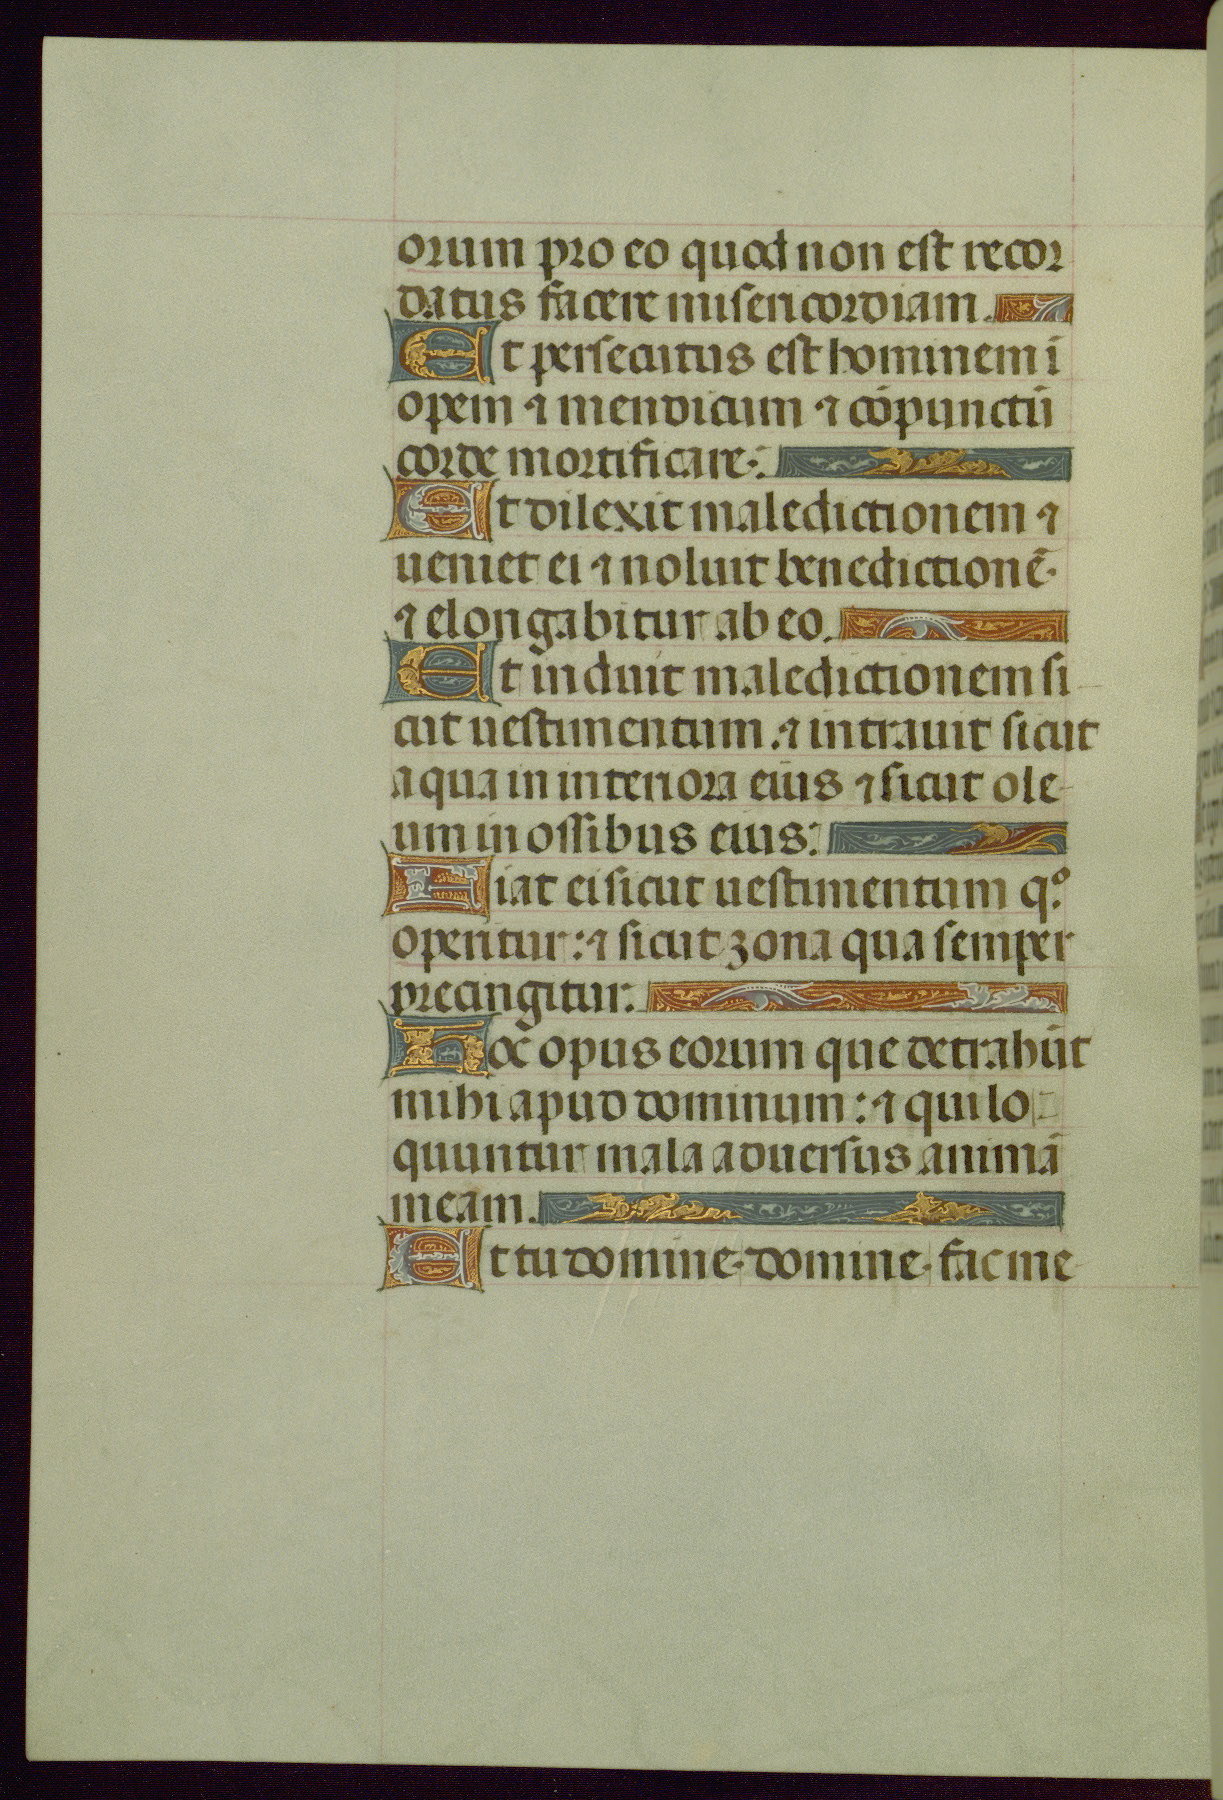 orum pro eo quod non est recor
datus facere misericordiam.
Et persecutus est hominem ī
opem ⁊ mendicum ⁊ cōpunctū
corde mortificare:
Et dilexit maledictionem ⁊
ueniet ei ⁊ noluit benedictionē.
⁊ elongabitur ab eo.
Et induit maledictionem si
cut uestimentum. ⁊ intrauit sicut
aqua in interiora eius ⁊ sicut ole
um in ossibus eius:
Fiat ei sicut uestimentum qº
operitur: ⁊ sicut zona qua semper
precingitur.
Hoc opus eorum que detrahūt
mihi apud dominum: ⁊ qui lo
quuntur mala aduersus animā
meam.
Et tu domine. domine. fac me